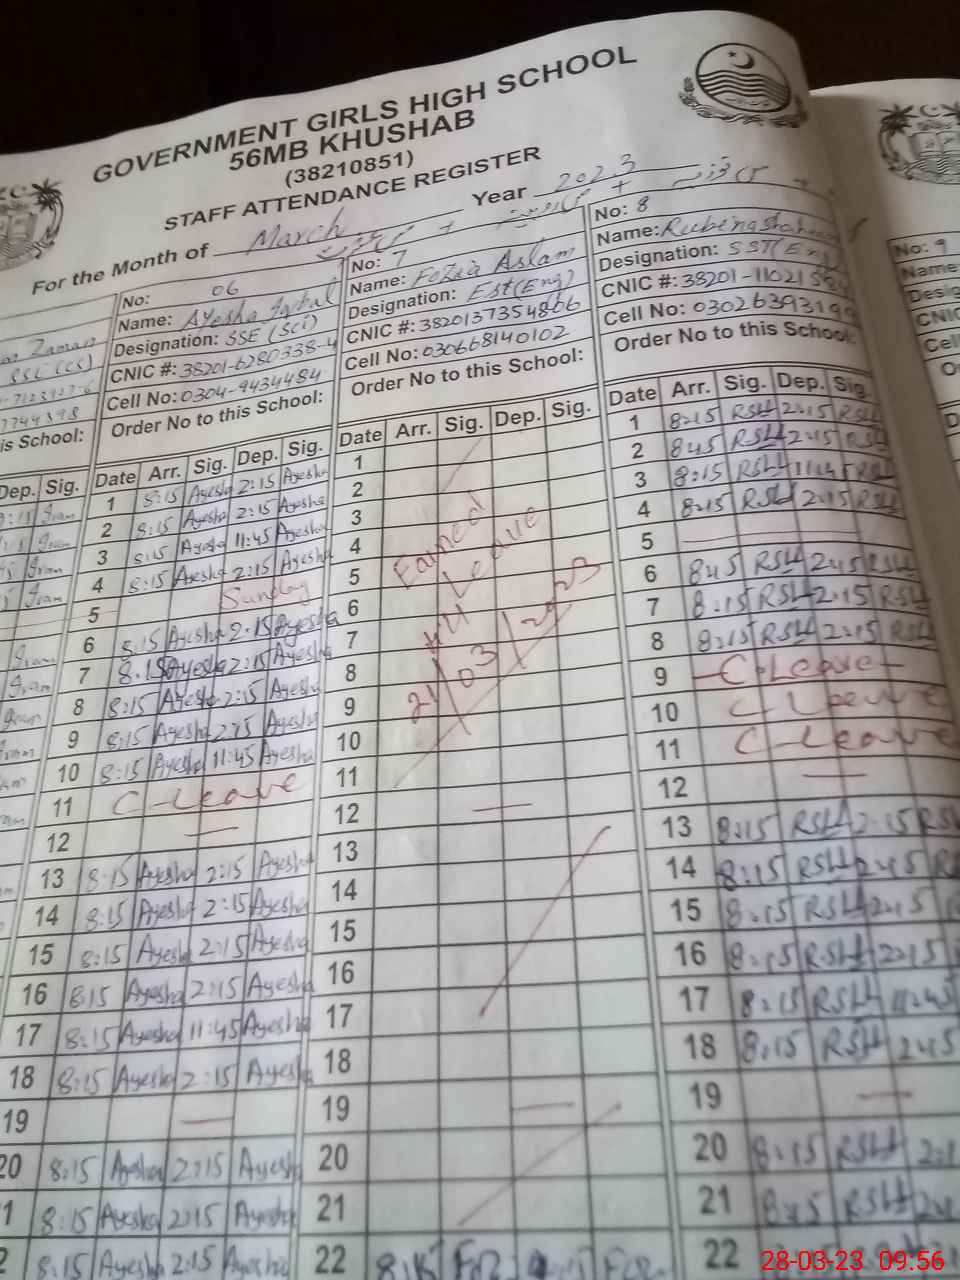 GOVERNMENT GIRLS HIGH SCHOOL
56MB KHUSHAB
(38210851)
STAFF ATTENDANCE REGISTER
For the Month of March Year 2023
Zaman
SSE (CS)
is School:
Dep. Sig.
No: 06
Name: Ayesha Iqbal
Designation: SSE (Sci)
CNIC #: 38201-6280338-4
Cell No: 0304-9434484
Order No to this School:
Date Arr. Sig. Dep. Sig.
1 8:15 Ayesha 2:15 Ayesha
2 8:15 Ayesha 2:15 Ayesha
3 8:15 Ayesha 11:45 Ayesha
4 8:15 Ayesha 2:15 Ayesha
5 Sunday
6 8:15 Ayesha 2:15 Ayesha
7 8:15 Ayesha 2:15 Ayesha
8 8:15 Ayesha 2:15 Ayesha
9 8:15 Ayesha 2:15 Ayesha
10 8:15 Ayesha 11:45 Ayesha
11 C-Leave
12 —
13 8:15 Ayesha 2:15 Ayesha
14 8:15 Ayesha 2:15 Ayesha
15 8:15 Ayesha 2:15 Ayesha
16 8:15 Ayesha 2:15 Ayesha
17 8:15 Ayesha 11:45 Ayesha
18 8:15 Ayesha 2:15 Ayesha
19 —
20 8:15 Ayesha 2:15 Ayesha
1 8:15 Ayesha 2:15 Ayesha
2 8:15 Ayesha 2:15 Ayesha
No: 7
Name: Fozia Aslam
Designation: Est (Eng)
CNIC #: 3820137354806
Cell No: 030668140102
Order No to this School:
Date Arr. Sig. Dep. Sig.
1
2
3
4
5
6
7
8
9
10
11
Earned
Leave
21/03/2023
12 —
13
14
15
16
17
18
19 —
20
21
22 8:15
No: 8
Name: Rubina Shaheen
Designation: SST (Eng)
CNIC #: 38201-1102
Cell No: 0302639319
Order No to this School:
Date Arr. Sig. Dep. Sig.
1 8:15 RSH 2:15 RSH
2 8:15 RSH 2:15 RSH
3 8:15 RSH 11:45 RSH
4 8:15 RSH 2:15 RSH
5 —
6 8:15 RSH 2:15 RSH
7 8:15 RSH 2:15 RSH
8 8:15 RSH 2:15 RSH
9 C-Leave
10 C-Leave
11 C-Leave
12 —
13 8:15 RSH 2:15 RSH
14 8:15 RSH 2:15
15 8:15 RSH 2:15
16 8:15 RSH 2:15
17 8:15 RSH 11:45
18 8:15 RSH 2:15
19 —
20 8:15 RSH
21 8:15 RSH
22
No: 9
Name
Desig
CNIC
Cell
28-03-23 09:56